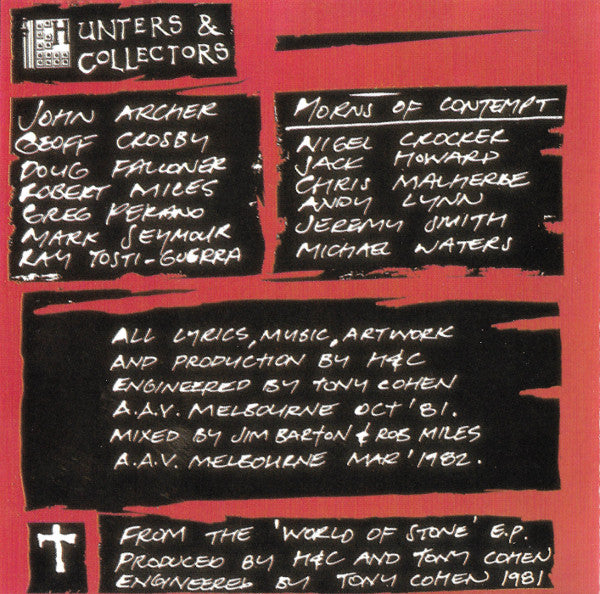 HUNTERS &
COLLECTORS
JOHN ARCHER
GEOFF CROSBY
DOUG FALCONER
ROBERT MILES
GREG PERANO
MARK SEYMOUR
RAY TOSTI-GUERRA
HORNS OF CONTEMPT
NIGEL CROCKER
JACK HOWARD
CHRIS MALHERBE
ANDY LYNN
JEREMY SMITH
MICHAEL WATERS
ALL LYRICS, MUSIC, ARTWORK
AND PRODUCTION BY H&C
ENGINEERED BY TONY COHEN
A.A.V. MELBOURNE OCT '81.
MIXED BY JIM BARTON & ROB MILES
A.A.V. MELBOURNE MAR '1982.
FROM THE 'WORLD OF STONE' E.P.
PRODUCED BY H&C AND TONY COHEN
ENGINEERED BY TONY COHEN 1981